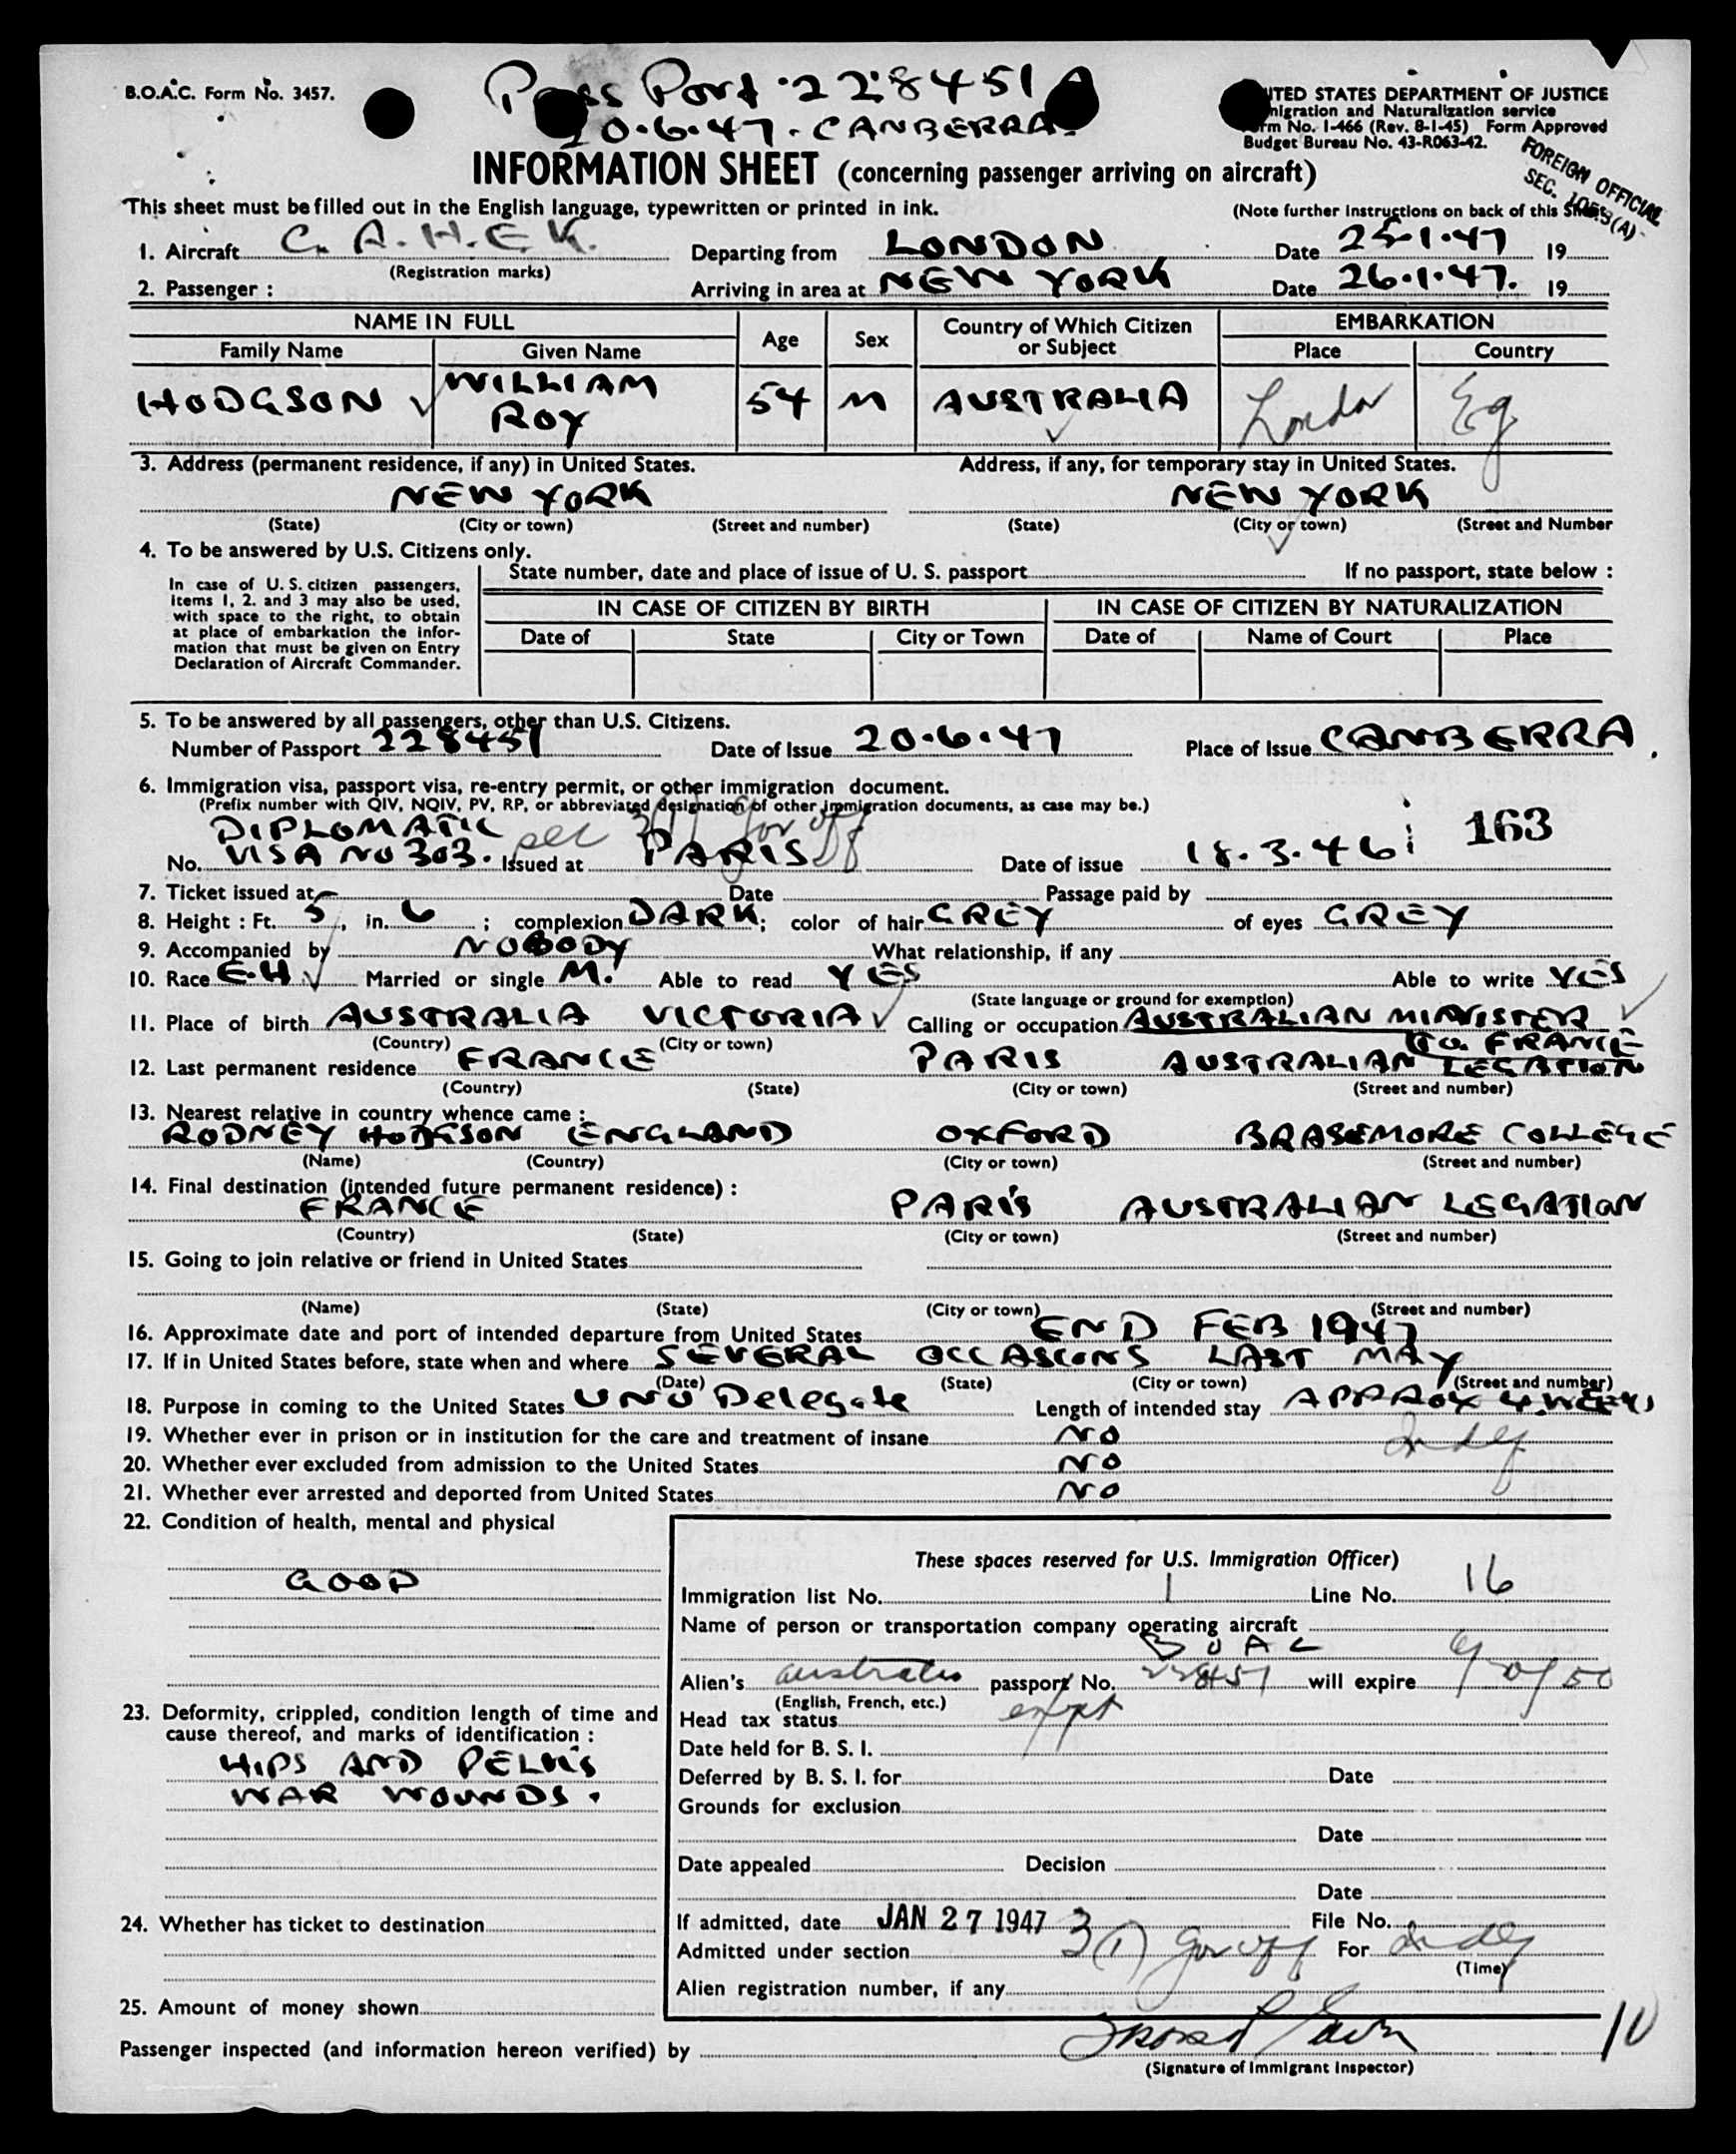 B.O.A.C. Form No. 3457.
Pass Port 228451
20.6.47. CANBERRA.
UNITED STATES DEPARTMENT OF JUSTICE
Immigration and Naturalization service
Form No. I-466 (Rev. 8-1-45) Form Approved
Budget Bureau No. 43-R063-42.
FOREIGN OFFICIAL
SEC.
INFORMATION SHEET (concerning passenger arriving on aircraft)
This sheet must be filled out in the English language, typewritten or printed in ink.
(Note further Instructions on back of this Sheet)
1. Aircraft G. A.H.E.K. Departing from LONDON Date 25.1.47 19
(Registration marks)
2. Passenger : Arriving in area at NEW YORK Date 26.1.47. 19
NAME IN FULL Age Sex Country of Which Citizen or Subject EMBARKATION
Family Name Given Name Place Country
HODGSON WILLIAM ROY 54 M AUSTRALIA London Eg
3. Address (permanent residence, if any) in United States. Address, if any, for temporary stay in United States.
NEW YORK NEW YORK
(State) (City or town) (Street and number) (State) (City or town) (Street and Number
4. To be answered by U.S. Citizens only.
In case of U. S. citizen passengers,
items 1, 2. and 3 may also be used,
with space to the right, to obtain
at place of embarkation the infor-
mation that must be given on Entry
Declaration of Aircraft Commander.
State number, date and place of issue of U. S. passport If no passport, state below :
IN CASE OF CITIZEN BY BIRTH IN CASE OF CITIZEN BY NATURALIZATION
Date of State City or Town Date of Name of Court Place
5. To be answered by all passengers, other than U.S. Citizens.
Number of Passport 228451 Date of Issue 20.6.47 Place of Issue CANBERRA.
6. Immigration visa, passport visa, re-entry permit, or other immigration document.
(Prefix number with QIV, NQIV, PV, RP, or abbreviated designation of other immigration documents, as case may be.)
DIPLOMATIC sec 3(1) gov off 163
No. VISA NO 303. Issued at PARIS Date of issue 18.3.46
7. Ticket issued at Date Passage paid by
8. Height : Ft. 5, in. 6 ; complexion DARK; color of hair GREY of eyes GREY
9. Accompanied by NOBODY What relationship, if any
10. Race E.H Married or single M. Able to read YES Able to write YES
(State language or ground for exemption)
11. Place of birth AUSTRALIA VICTORIA Calling or occupation AUSTRALIAN MINISTER
(Country) (City or town) TO. FRANCE
12. Last permanent residence FRANCE PARIS AUSTRALIAN LEGATION
(Country) (State) (City or town) (Street and number)
13. Nearest relative in country whence came :
RODNEY HODGSON ENGLAND OXFORD BRASEMORE COLLEGE
(Name) (Country) (City or town) (Street and number)
14. Final destination (intended future permanent residence) :
FRANCE PARIS AUSTRALIAN LEGATION
(Country) (State) (City or town) (Street and number)
15. Going to join relative or friend in United States
(Name) (State) (City or town) (Street and number)
16. Approximate date and port of intended departure from United States END FEB 1947
17. If in United States before, state when and where SEVERAL OCCASIONS LAST MAY
(Date) (State) (City or town) (Street and number)
18. Purpose in coming to the United States UNO Delegate Length of intended stay APPROX 4 WEEKS
19. Whether ever in prison or in institution for the care and treatment of insane NO Indef
20. Whether ever excluded from admission to the United States NO
21. Whether ever arrested and deported from United States NO
22. Condition of health, mental and physical
GOOD
23. Deformity, crippled, condition length of time and
cause thereof, and marks of identification :
HIPS AND PELVIS
WAR WOUNDS.
24. Whether has ticket to destination
25. Amount of money shown
These spaces reserved for U.S. Immigration Officer)
Immigration list No. 1 Line No. 16
Name of person or transportation company operating aircraft
BOAC
Alien's Australia passport No. 228451 will expire
(English, French, etc.)
Head tax status expt
Date held for B. S. I.
Deferred by B. S. I. for Date
Grounds for exclusion
Date
Date appealed Decision
Date
If admitted, date JAN 27 1947 File No.
Admitted under section 3(1) gov off For Indef
(Time)
Alien registration number, if any
Passenger inspected (and information hereon verified) by
(Signature of Immigrant Inspector)
10